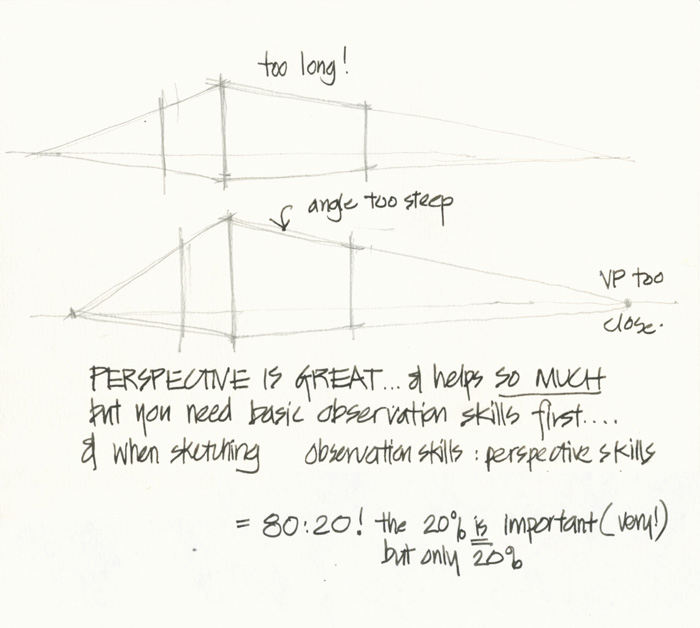 too long!
angle too steep
VP too
close.
PERSPECTIVE IS GREAT... & helps SO MUCH
but you need basic observation skills first....
& when sketching observation skills : perspective skills
= 80:20! the 20% is important (very!)
but only 20%